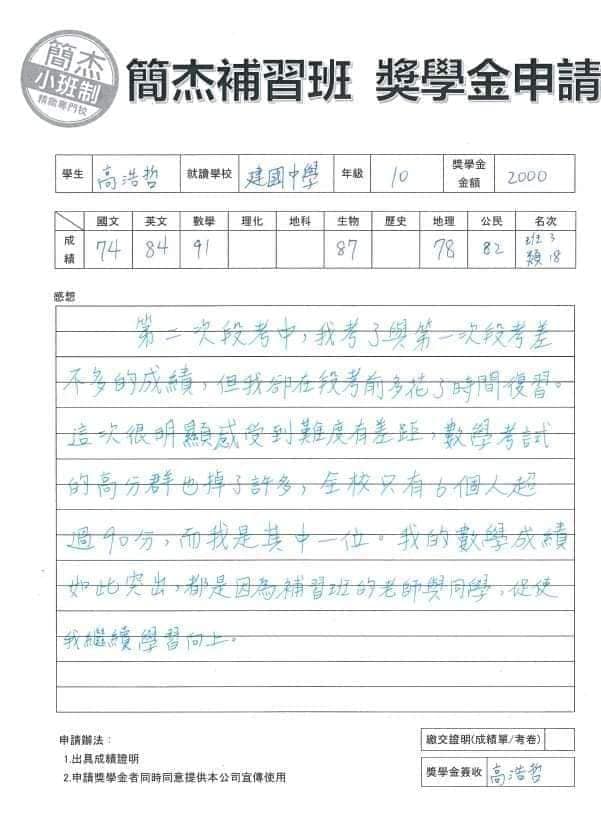 簡杰
小班制
精緻專門校
簡杰補習班 獎學金申請
學生 高浩哲 就讀學校 建國中學 年級 10 獎學金金額 2000
國文 英文 數學 理化 地科 生物 歷史 地理 公民 名次
成績 74 84 91 87 78 82 班3 類18
感想
第二次段考中,我考了與第一次段考差
不多的成績,但我卻在段考前多花了時間復習。
這次很明顯感受到難度有差距,數學考試
的高分群也掉了許多,全校只有6個人超
過90分,而我是其中一位。我的數學成績
如此突出,都是因為補習班的老師與同學,促使
我繼續學習向上。
申請辦法:
1.出具成績證明
2.申請獎學金者同時同意提供本公司宣傳使用
繳交證明(成績單/考卷)
獎學金簽收 高浩哲